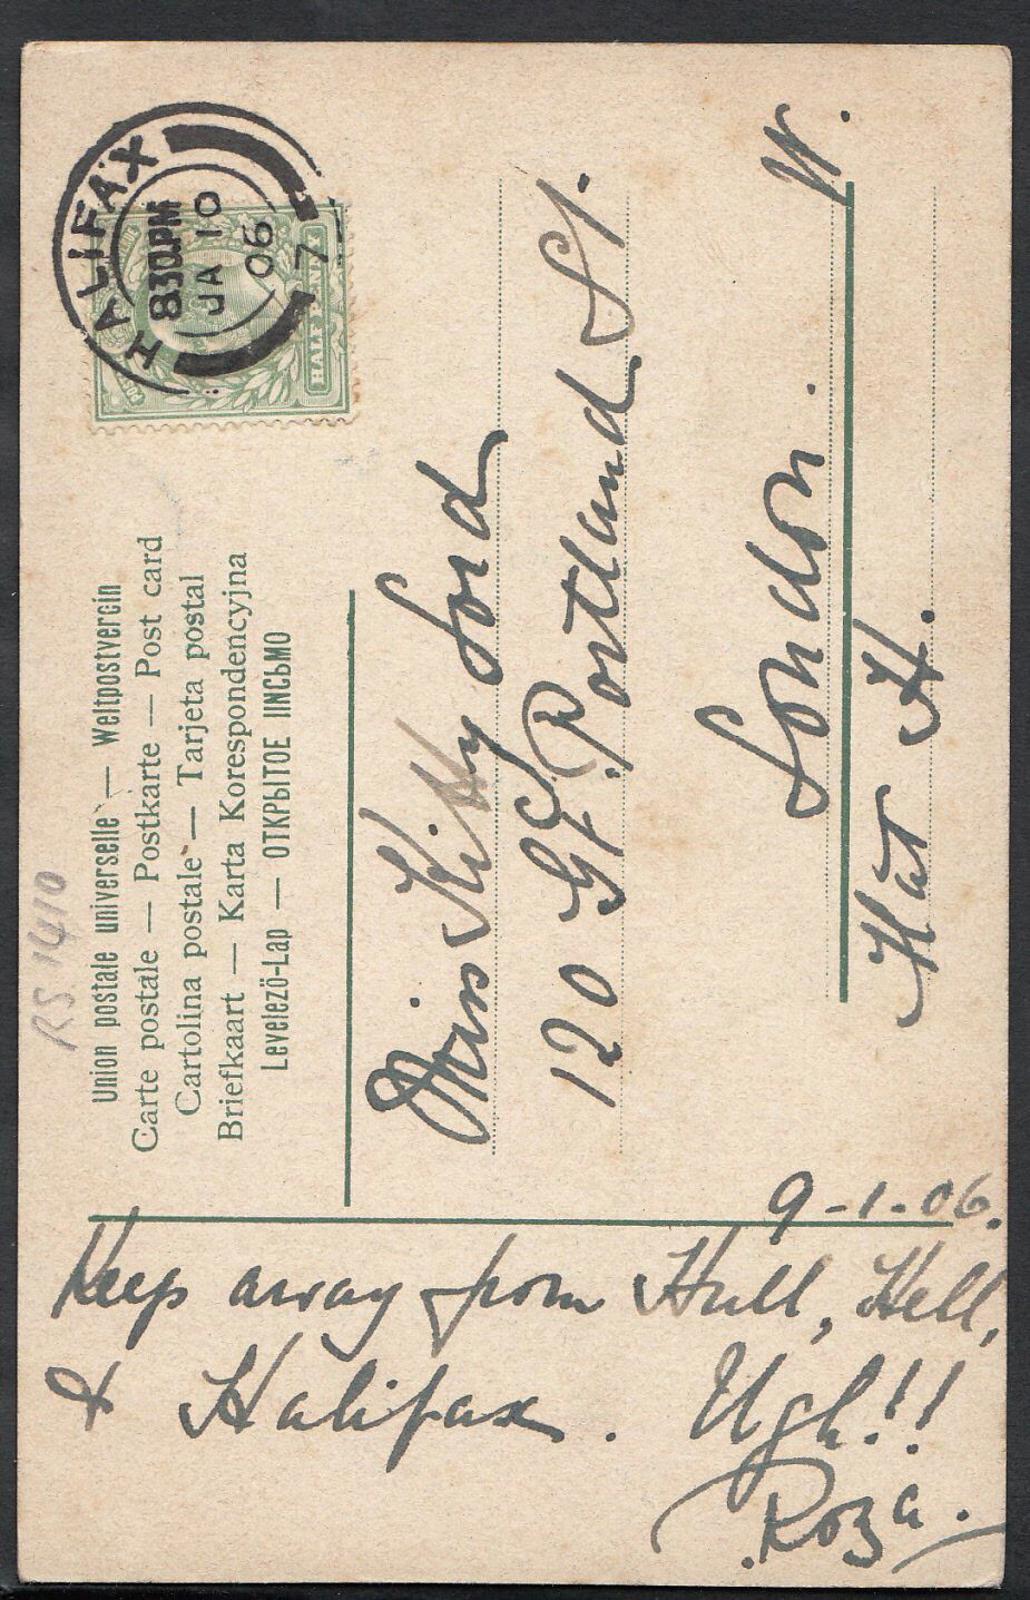 RS 1410
Union postale universelle — Weltpostverein
Carte postale — Postkarte — Post card
Cartolina postale — Tarjeta postal
Briefkaart — Karta Korespondencyjna
Levelező-Lap — ОТКРЫТОЕ ПИСЬМО
HALIFAX
8 30 PM
JA 10
06
7
HALF PENNY
Miss Kitty Lord
120 Gt. Portland St.
London. W.
Hat H.
9-1-06.
Keep away from Hull, Hell,
& Halifax. Ugh!!
Roza.